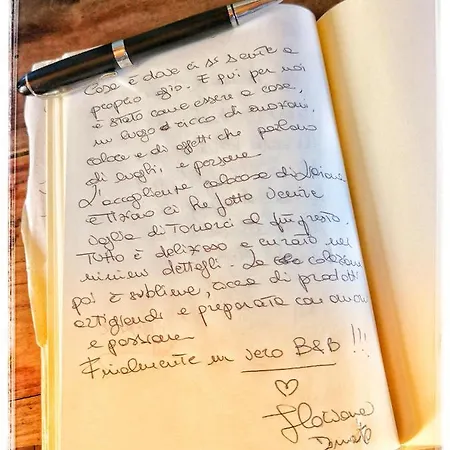 Casa è dove ci si sente a
proprio agio. E qui per noi
è stato come essere a casa,
un luogo ricco di emozioni,
calore e di oggetti che parlano
di luoghi e persone
L'accogliente calorosa di
e ci ha fatto venire
voglia di tornarci al più presto.
Tutto è delizioso e curato nei
minimi dettagli. La colazione
poi è sublime, ricca di prodotti
artigianali e preparata con amore
e passione
Finalmente un vero B&B !!!
♡